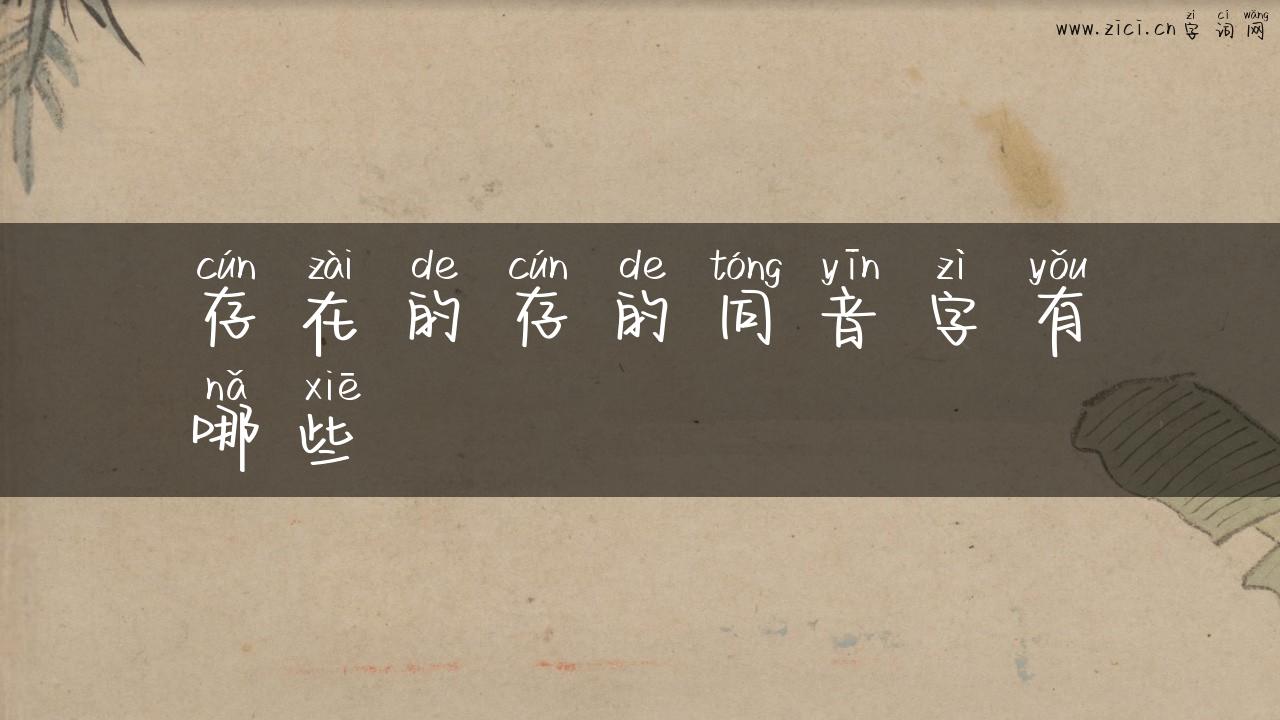 zì cí wǎng
www.zici.cn 字词网
cún zài de cún de tóng yīn zì yǒu
存在的存的同音字有
nǎ xiē
哪些